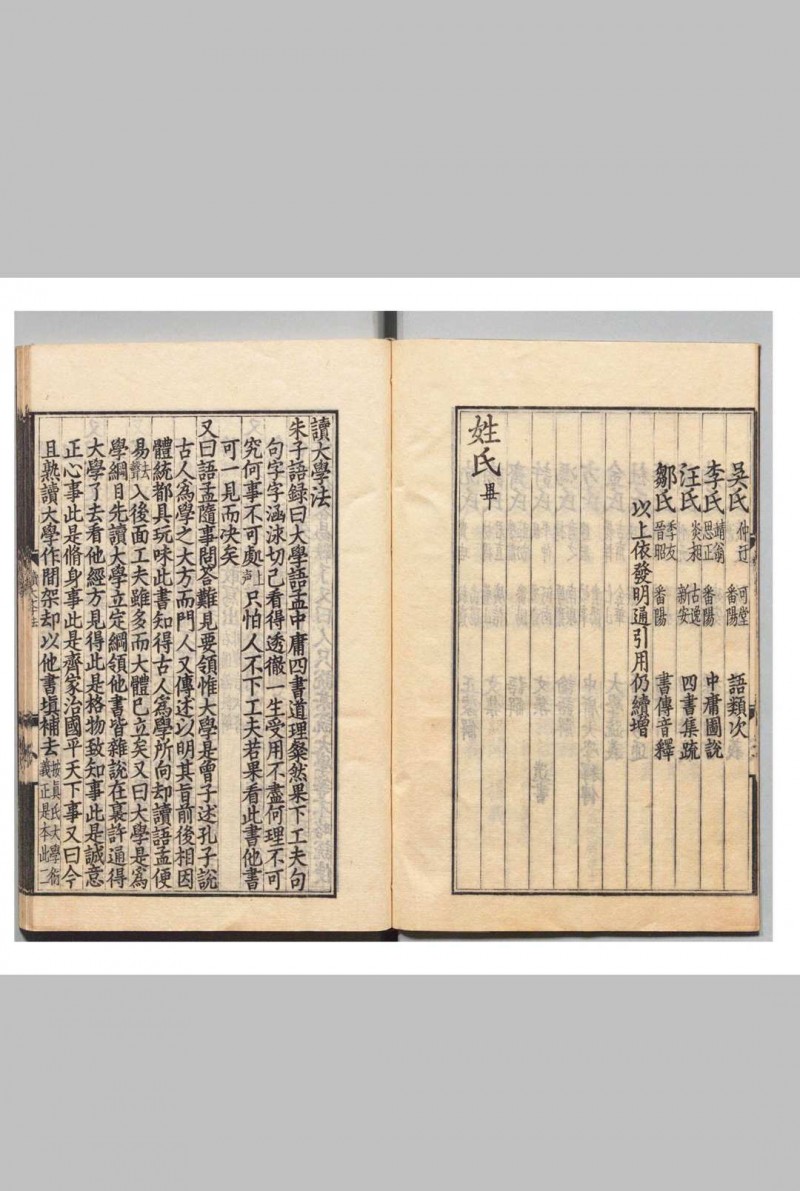 吳氏 仲迂 可堂 番陽 語類次
李氏 靖翁 思正 番陽 中庸圖說
汪氏 炎昶 古逸 新安 四書集疏
鄒氏 季友 晉昭 番陽 書傳音釋
以上依發明通引用仍續增
姓氏畢
讀大學法
朱子語録曰大學語孟中庸四書道理粲然果下工夫句
句字字涵泳切己看得透徹一生受用不盡何理不可
究何事不可處上声只怕人不下工夫若果看此書他書
可一見而决矣
又曰語孟隨事問答難見要領惟大學是曾子述孔子說
古人爲學之大方而門人又傳述以明其旨前後相因
體統都具玩味此書知得古人爲學所向却讀語孟便
易去聲入後面工夫雖多而大體已立矣又曰大學是爲
學綱目先讀大學立定綱領他書皆雜說在裏許通得
大學了去看他經方見得此是格物致知事此是誠意
正心事此是脩身事此是齊家治國平天下事又曰今
且熟讀大學作間架却以他書填補去按真氏大學衍義正是本此二